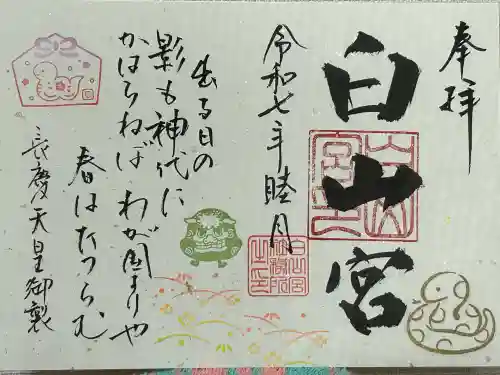 奉拝
白山宮
令和七年睦月
出る日の
影も神代に
かはらねば わが国よりや
春はたつらむ
長慶天皇御製